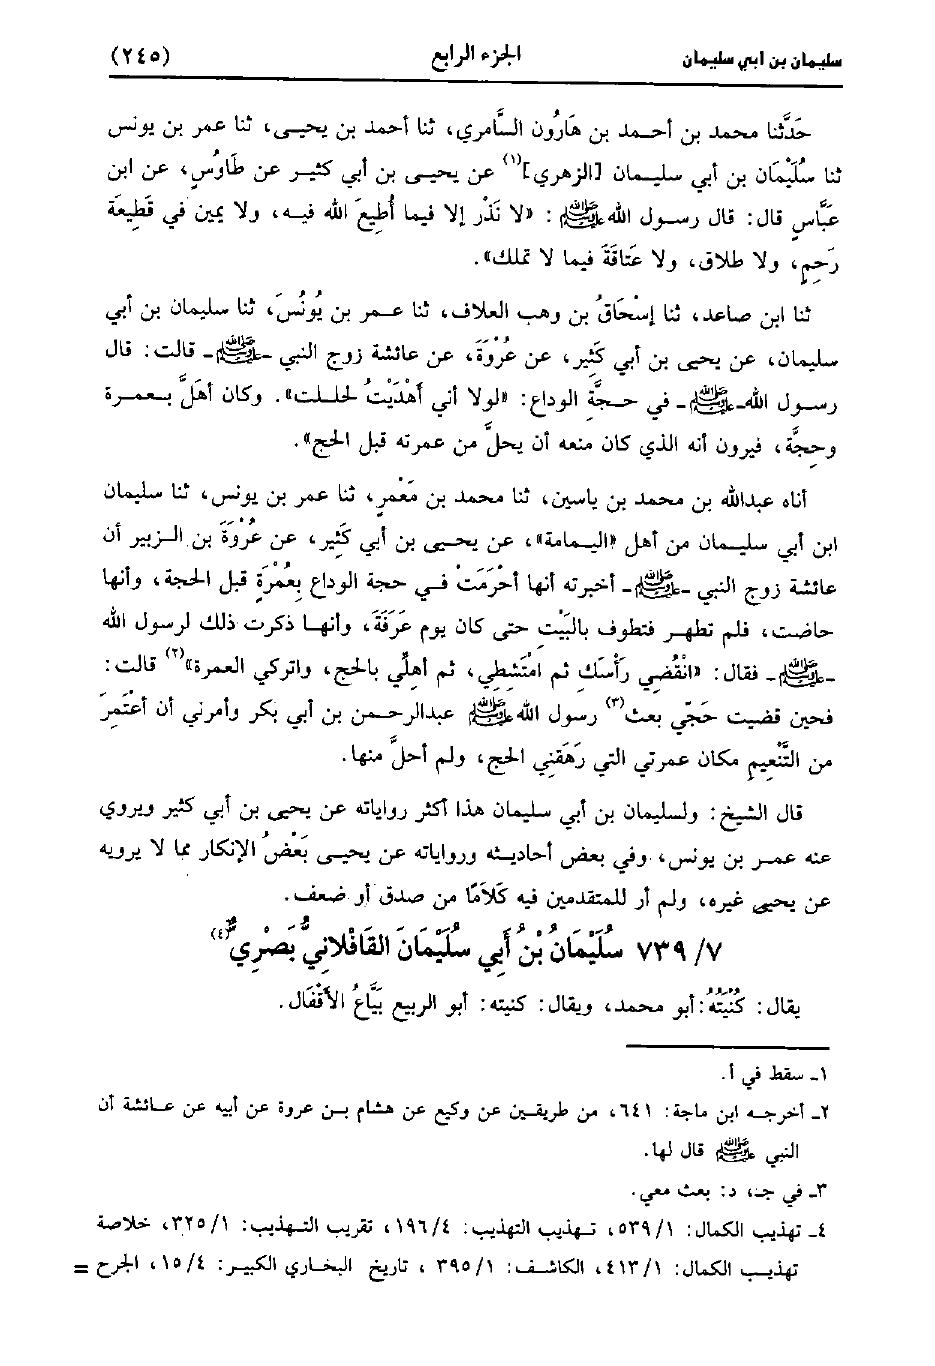 سليمان بن ابي سليمان الجزء الرابع (٢٤٥)
حَدَّثنا محمد بن أحـمـد بن هَارُون السَّامري، ثنا أحمد بن يحيـى، ثنا عمر بن يونس
ثنا سُلَيْمَان بن أبي سليـمان [الزهري](١) عن يحيـى بن أبي كثيـر عن طَاوُسٍ، عن ابن
عَبَّاسٍ قال: قال رسول الله ﷺ: «لا نَذْر إلا فيما أُطيعَ الله فيـه، ولا يمين في قَطِيعَة
رَحِمٍ، ولا طلاق، ولا عَتاقَةَ فيما لا تملك».
ثنا ابن صاعد، ثنا إسْحَاقُ بن وهب العلاف، ثنا عـمر بن يُونُسَ، ثنا سليمان بن أبي
سليمان، عن يحيى بن أبي كَثِير، عن عُرْوَةَ، عن عائشة زوج النبي -ﷺ- قالت: قال
رسول الله-ﷺ- في حـجـَّةِ الوداع: «لولا أني أَهْدَيْتُ لحللت». وكان أهلَّ بـعمـرة
وحِجَّة، فيرون أنه الذي كان منعه أن يحلَّ من عمرته قبل الحج».
أناه عبدالله بن محمد بن ياسين، ثنا محمد بن مَعْمَرٍ، ثنا عمر بن يونس، ثنا سليمان
ابن أبي سليـمان من أهل «اليـمامة»، عن يحيـى بن أبي كَثِير، عن عُرْوَةَ بن الـزبير أن
عائشة زوج النبي -ﷺ- أخبرته أنها أحْرَمَتْ فـي حجة الوداع بِعُمْرَةٍ قبل الحجة، وأنها
حاضت، فلم تطهـر فتطوف بالبَيْتِ حتى كان يوم عَرَفَةَ، وأنهـا ذكرت ذلك لرسول الله
-ﷺ- فقال: «انْقُضِي رَأْسَك ثم امْتَشِطِي، ثم أهلِّي بالحج، واتركي العمرة»(٢) قالت:
فحين قضيت حَجّي بعث(٣) رسول الله ﷺ عبدالرحـمن بن أبي بكر وأمرني أن أعْتَمِرَ
من التَّنْعِيمِ مكان عمرتي التي رَهَقَنِي الحج، ولم أحلَّ منها.
قال الشيخ: ولسليمان بن أبي سليمان هذا أكثر رواياته عن يحيى بن أبي كثير ويروي
عنه عمـر بن يونس، وفي بعض أحاديثه ورواياته عن يحيـى بَعْضُ الإنكار مما لا يرويه
عن يحيى غيره، ولم أر للمتقدمين فيه كَلاَمًا من صدق أو ضعف.
٧/ ٧٣٩ سُلَيْمَانُ بْنُ أَبِي سُلَيْمَانَ القَافْلانِيُّ بَصْرِيٌّ(٤)
يقال: كُنْيَتُهُ: أبو محمد، ويقال: كنيته: أبو الربيع بَيَّاعُ الأَقْفَال.
١ـ سقط في أ.
٢ـ أخرجـه ابن ماجة: ٦٤١، من طريقـين عن وكيع عن هشام بـن عروة عن أبيه عن عـائشة أن
النبي ﷺ قال لها.
٣ـ في جـ، د: بعث معي.
٤ـ تهذيب الكمال: ٥٣٩/١، تـهذيب التهذيب: ١٩٦/٤، تقريب التـهذيب: ٣٢٥/١، خلاصة
تهذيـب الكمال: ٤١٣/١، الكاشـف: ٣٩٥/١ ، تاريخ البخاري الكبيـر: ١٥/٤، الجرح =